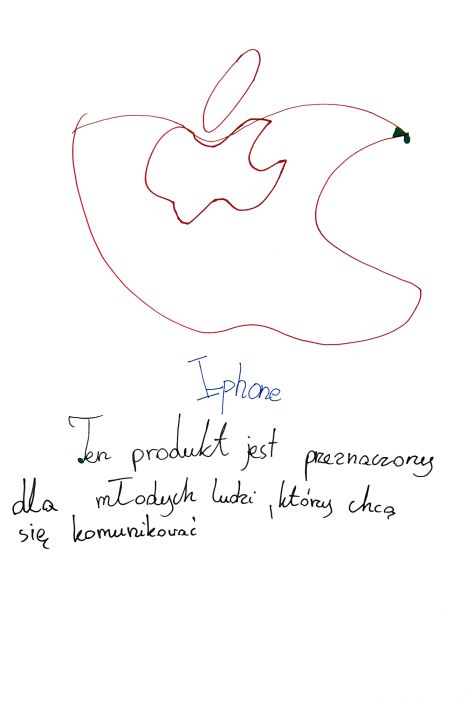 Iphone
Ten produkt jest przeznaczony
dla młodych ludzi, którzy chcą
się komunikować